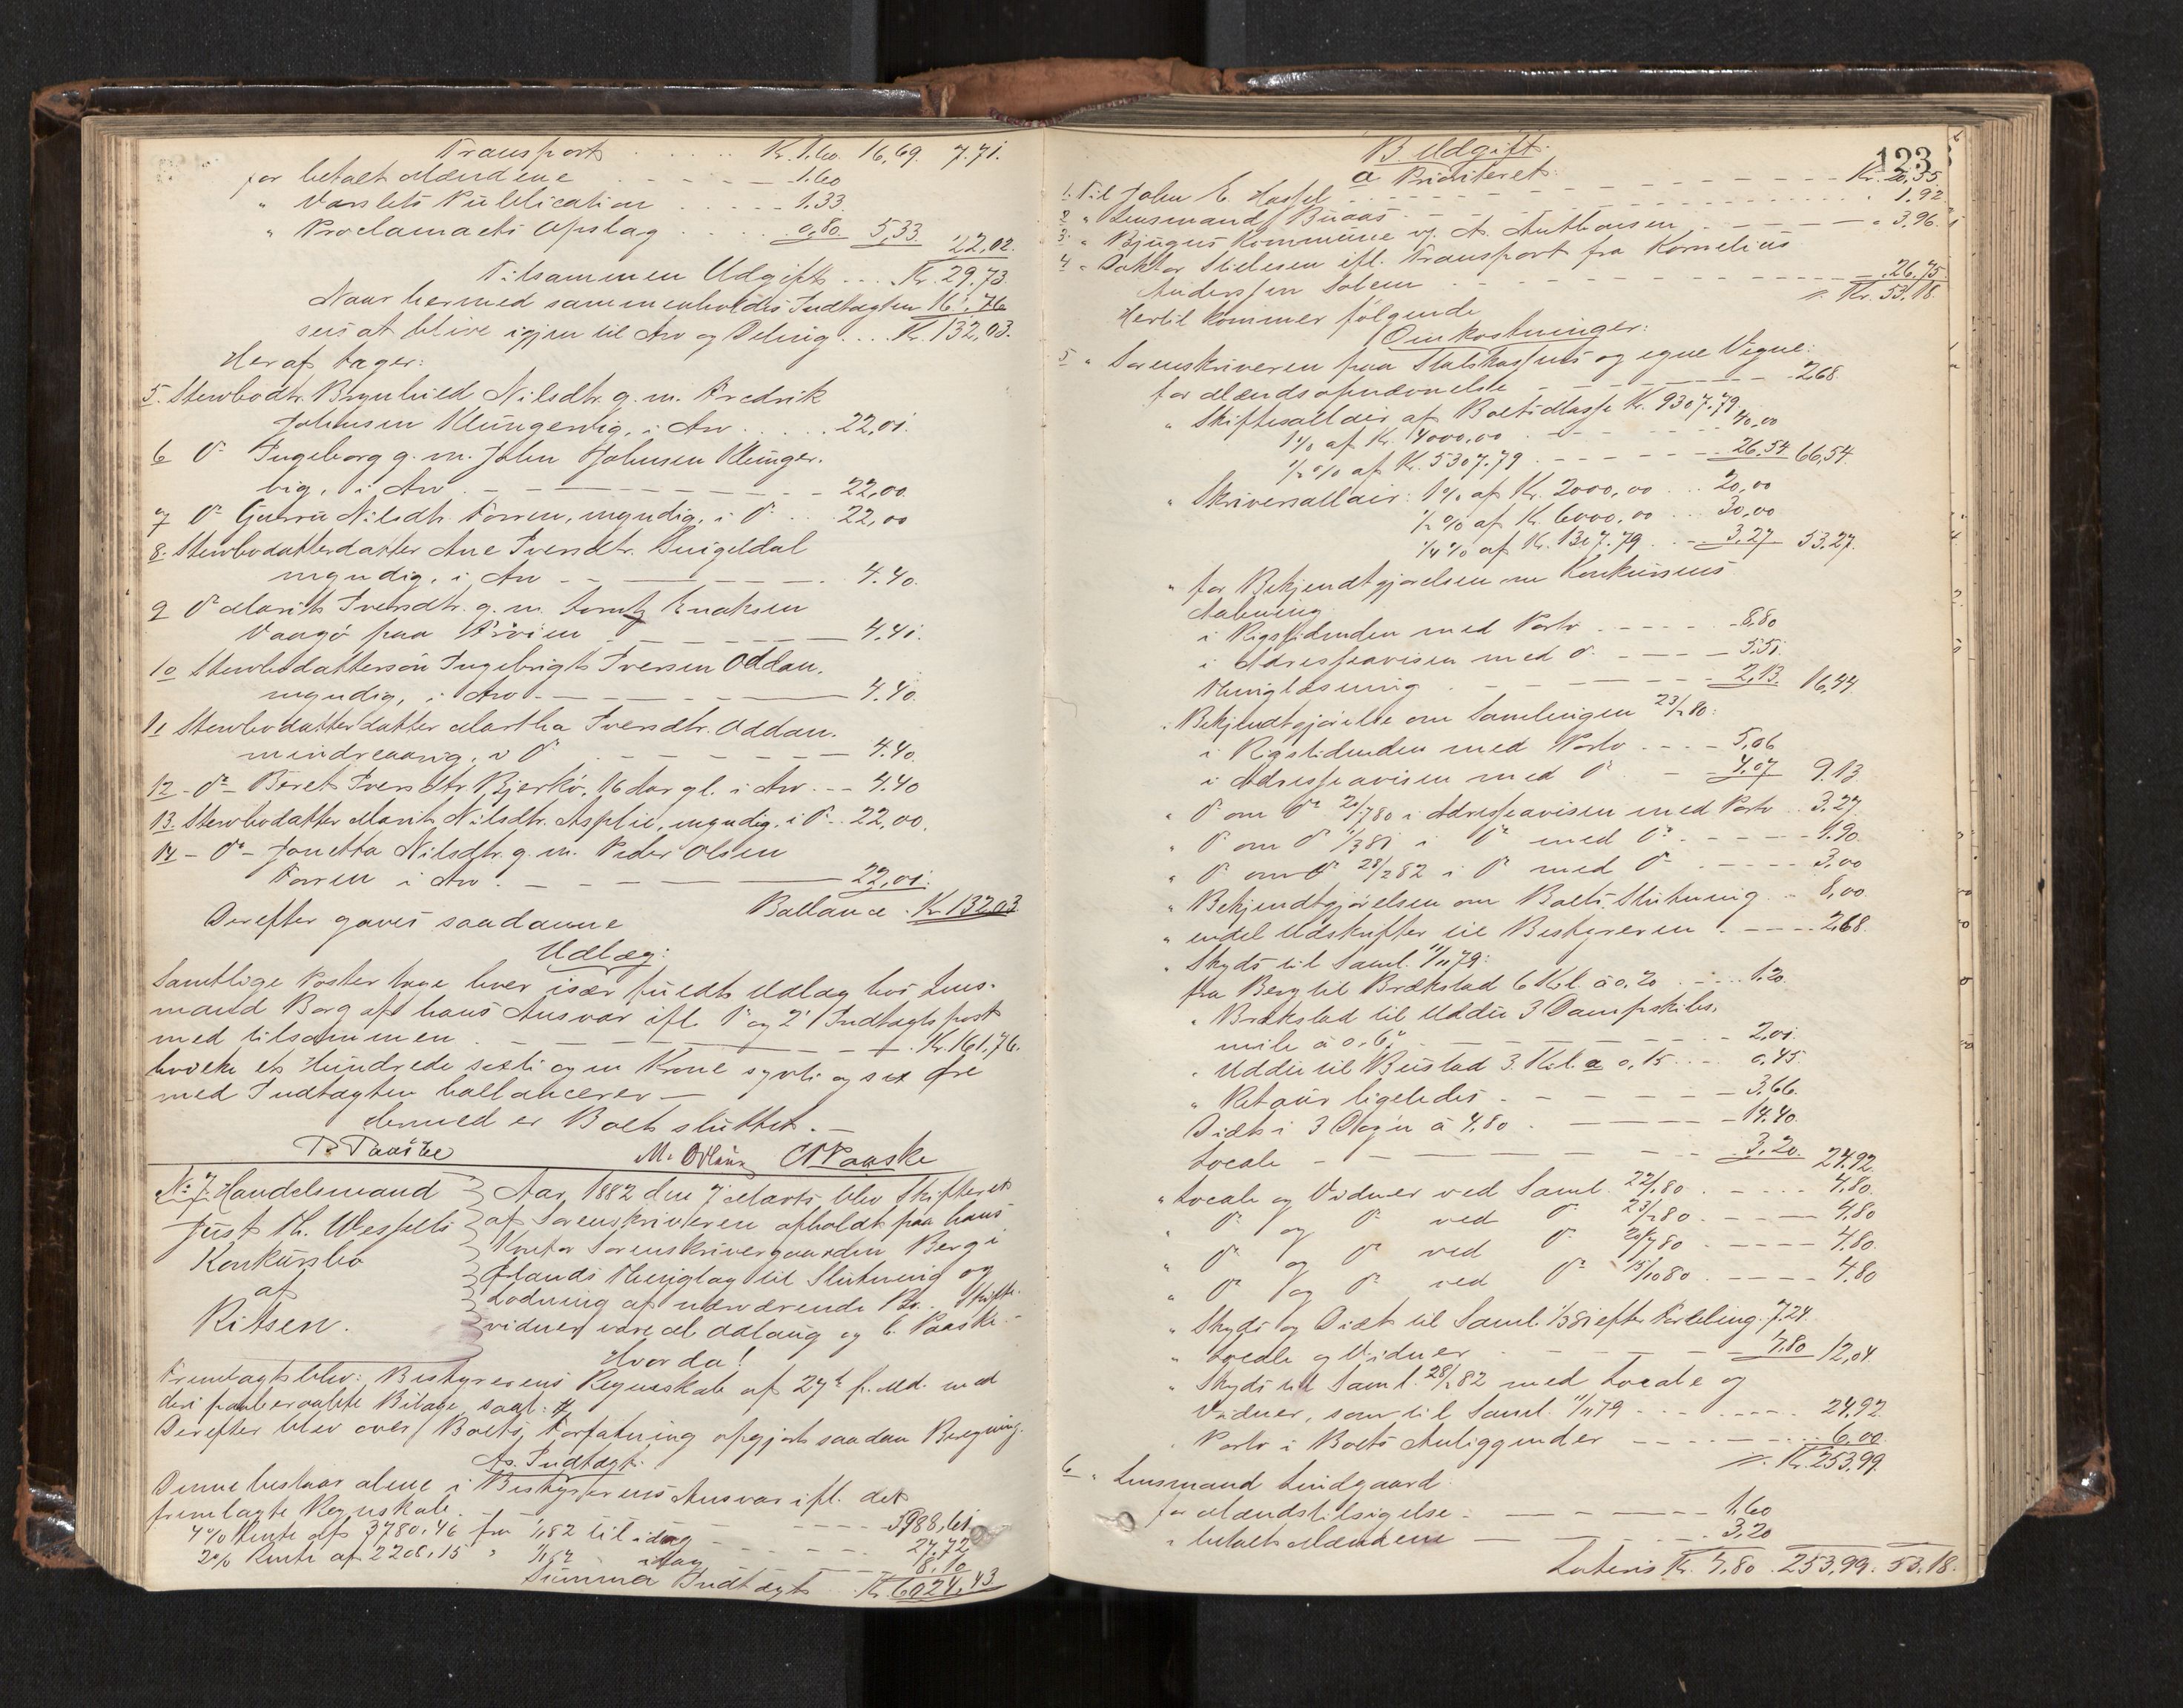 Transport . . . . . Kr. 1.60. 16,69. 7.71.
for betalt Mændene - - - - - 1.60
" Varslets Publication . . . . . 1.33.
" Proclamaets Opslag . . . . 0,80. 5,33. 22,02.
Tilsammen Udgift . . . Kr. 29,73
Naar hermed sammenholdes Indtægten 161,76
sees at blive igjen til Arv og Deling . . . Kr. 132,03.
Heraf tager:
5. Stervbodtr. Brynhild Nilsdtr. g. m. Fredrik
Johnsen Klungervig, i Arv . . . . . 22,01.
6 do Ingeborg g. m. John Johnsen Klunger-
vig, i Arv - - - - - 22,00.
7 do Gurru Nilsdtr. Forren, myndig, i do . . 22,00
8. Stervbodatterdatter Ane Iversdtr.
myndig, i Arv - - - - 4.40.
9 do Marit Iversdtr. g. m.
paa - - - - 4,41.
10 Stervbodattersøn Ingebrigt Iversen Oddan,
myndig, i Arv - - - - 4.40.
11 Stervbodatterdatter Martha Iversdtr. Oddan,
mindreaarig, i do - - - - 4.40.
12 - do - Beret Iversdtr. Bjerkø, 16 Aar gl. i Arv - - - 4.40
13. Stervbodatter Marit Nilsdtr. Asplie, myndig, i do . . 22,00.
14 - do - Jonetta Nilsdtr. g. m. Peder Olsen
Forren i Arv - - - - 22,01.
Ballance . Kr. 132,03
Derefter gaves saadanne
Udlæg:
Samtlige Poster tage hver især fuldt Udlæg hos Lens-
mand Borg af hans Ansvar ifl. 1 og 2 Indtægtspost
med tilsammen - - - - Kr. 161.76.
hvilke et Hundrede sexti og en Krone sytti og sex Øre
med Indtægten ballancerer -
dermed er Boet sluttet. -
P. Paaske M. Odlaug C. Paaske
No. 7. Handelsmand
Just Th. Wessels
Konkursbo
af
Ritsen.
Aar 1882 den 7 Marts blev Skifteret
af Sorenskriveren afholdt paa hans
Kontor Sorenskrivergaarden Berg i
Ørlands Thinglag til Slutning og
Lodning af nærværende Bo. - Skifte-
vidner vare M. Odlaug og C. Paaske. -
Hvorda!
Fremlagt blev: Bestyrerens Regnskab af 27de f. Md. med
deri paaberaabte Bilage, saal: #
Derefter blev over Boets Forfatning opgjort saadan Beregning.
A. Indtægt.
Denne bestaar alene i Bestyrerens Ansvar ifl. det
fremlagte Regnskab - - - - 5988,61
4% Rente af 3780.46 fra 1/1 82 til idag - - - 27,72
2% Rente af 2206,15 " 1/1 82 " idag - - - 8.10
Summa Indtægt . Kr. 6024,43
123
B. Udgift.
a Prioriteret
1. Til John E. Hassel - - - - Kr. 20,55.
2 " Lensmand Buaas - - - - " 1,92
3. " Bjugns Kommune v. A. Anthonsen - - - - " 3,96.
4 " Doktor ifl. Transport fra Kornelius
Anderssen Solem - - - - 26,75.
Kr. 53,18.
Hertil kommer følgende
Omkostninger:
5 " Sorenskriveren paa Statskassens og egne Vegne:
for Mændsopnævnelse - - - - 2,68.
" Skiftesallair af Boets Masse Kr. 9307.79
1% af Kr. 4000,00 - - - - 40,00
1/2% af Kr. 5307.79 - - - - 26.54. 66,54.
" Skriversallair: 1% af Kr. 2000,00 . . 20,00
1/2% af Kr. 6000,00 . . 30,00
1/4% af Kr. 1307.79 . . 3,27 53.27.
" for Bekjendtgjørelsen om Konkursens
Aabning
i Rigstidenden med Porto - - - - 8,80
i Adresseavisen med do. - - - - 5,51.
Thinglæsning - - - - 2,13. 16,44.
" Bekjendtgjørelse om Samlingen 23/2 80:
i Rigstidenden med Porto - - - - 5,06
i Adresseavisen med do - 4,07 9.13
" do om do 20/7 80 i Adresseavisen med Porto . . 3.27
" do om do 1/3 81 i do med do - - - - 4.90.
" do om do 28/2 82 i do med do - - - - 3,00
" Bekjendtgjørelsen om Boets Slutning . . 8,00.
" endel Udskrifter til Bestyreren - - - - 2,68.
" Skyds til Saml. 11/11 79:
fra Berg til Brækstad 6 Kil. à 0,20 . . . . 1.20.
" Brækstad til Uddu 3 Dampskibs-
mile à 0,67 - - - - 2,01.
" Uddu til Bustad 3 Kil. a 0,15 . . . 0,45
" Retour ligeledes - - - - 3,66.
Diæt i 3 Døgn à 4,80 - - - - 14.40.
Locale - - - - 3,20. 24,92
" Locale og Vidner ved Saml. 22/1 80 - - - - 4,80.
" do og do ved do 23/2 80 - - - - 4,80
" do og do ved do 20/7 80 - - - - 4.80.
" do og do ved do 15/10 80 - - - - 4.80
" Skyds og Diæt til Saml. 1/3 81 efter Fordeling. 7.24.
" Locale og Vidner - - - - 4,80 12,04
" Skyds til Saml. 28/2 82 med Locale og
Vidner, som til Saml. 11/11 79 - - - - 24,92
" Porto i Boets Anliggender - - - - 6,00
Kr. 253,99.
6 " Lensmand Lindgaard
for Mændstilsigelse - - - - 1,60
" betalt Mændene - - - - 3,20
Lateris Kr. 4,80 . 253,99. 53,18.